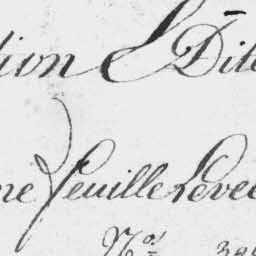 tion & Dit
ne feuille Levée
Nos 38